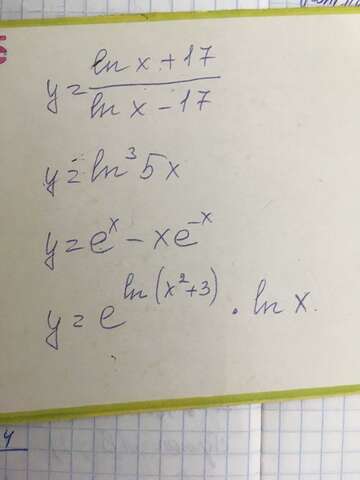 y = (ln x + 17)/(ln x − 17)
y = ln³ 5x
y = eˣ − xe⁻ˣ
y = e^(ln(x²+3)) · ln x.
4